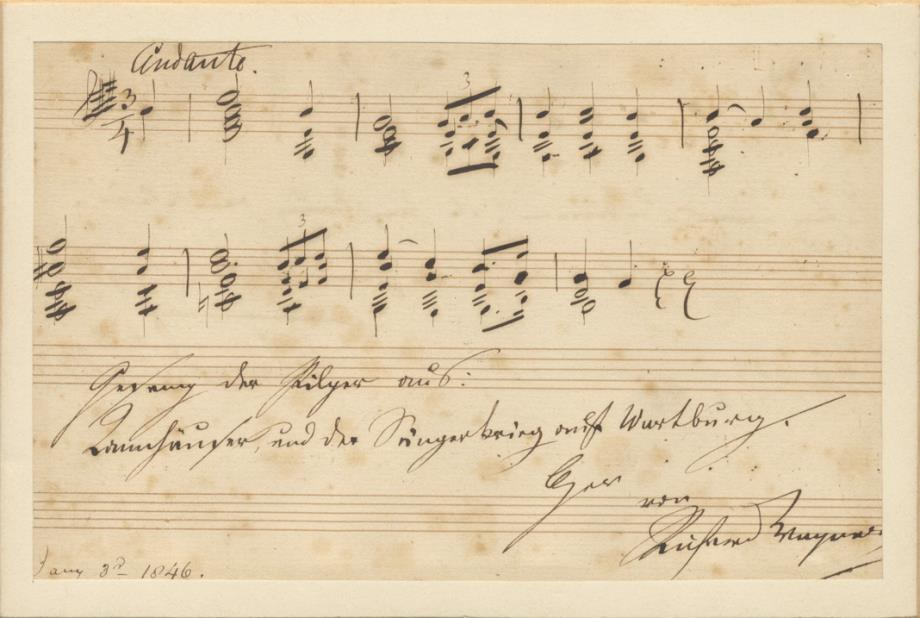 Andante.
3
4
3
3
Gesang der Pilger aus:
Tannhäuser und der Sängerkrieg auf Wartburg.
von
Richard Wagner
Jany 3d 1846.